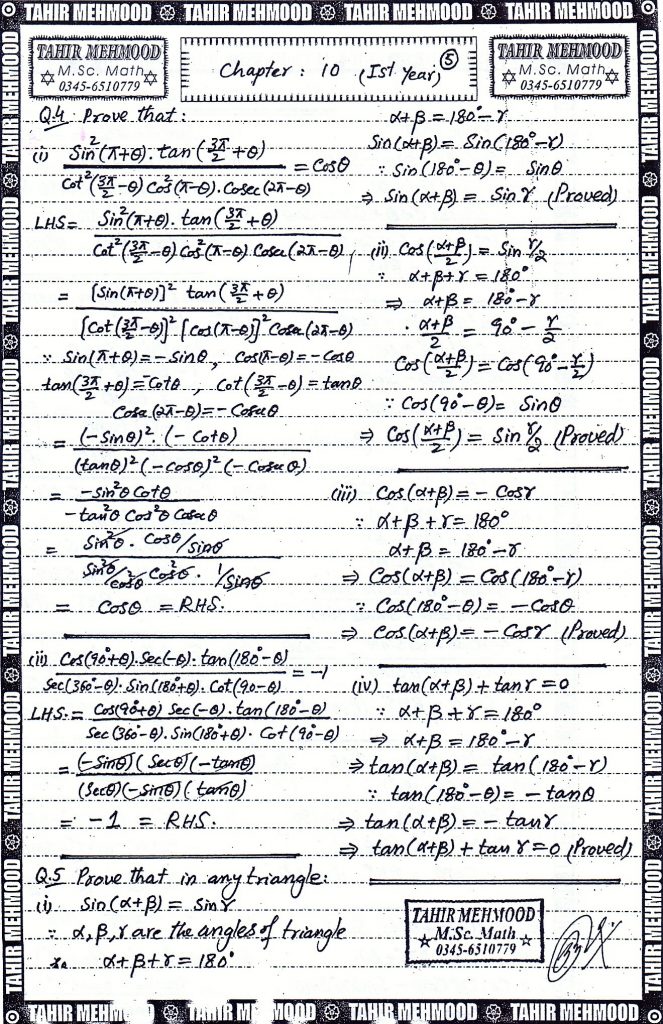 TAHIR MEHMOOD TAHIR MEHMOOD TAHIR MEHMOOD TAHIR MEHMOOD
TAHIR MEHMOOD
M.Sc. Math
0345-6510779
Chapter : 10 (Ist Year) 5
TAHIR MEHMOOD
M.Sc. Math
0345-6510779
Q.4 Prove that:
(i) Sin²(π+θ). tan(3π/2 +θ) / Cot²(3π/2 -θ) Cos²(π-θ). Cosec(2π-θ) = Cosθ
LHS = Sin²(π+θ). tan(3π/2 +θ) / Cot²(3π/2 -θ) Cos²(π-θ) Cosec(2π-θ)
= [Sin(π+θ)]² tan(3π/2 +θ) / [Cot(3π/2 -θ)]² [Cos(π-θ)]² Cosec(2π-θ)
∵ Sin(π+θ) = -Sinθ, Cos(π-θ) = -Cosθ
tan(3π/2 +θ) = -Cotθ, Cot(3π/2 -θ) = tanθ
Cosec(2π-θ) = -Cosecθ
= (-Sinθ)². (-Cotθ) / (tanθ)² (-Cosθ)² (-Cosecθ)
= -Sin²θ Cotθ / -tan²θ Cos²θ Cosecθ
= Sin²θ. Cosθ/Sinθ / Sin²θ/Cos²θ Cos²θ. 1/Sinθ
= Cosθ = RHS.
(ii) Cos(90°+θ). Sec(-θ). tan(180°-θ) / Sec(360°-θ). Sin(180°+θ). Cot(90-θ) = -1
LHS. = Cos(90°+θ) Sec(-θ). tan(180°-θ) / Sec(360°-θ). Sin(180°+θ). Cot(90°-θ)
= (-Sinθ)(Secθ)(-tanθ) / (Secθ)(-Sinθ)(tanθ)
= -1 = RHS.
Q.5 Prove that in any triangle:
(i) Sin(α+β) = Sinγ
∵ α, β, γ are the angles of triangle
α+β+γ = 180°
α+β = 180°-γ
Sin(α+β) = Sin(180°-γ)
∵ Sin(180°-θ) = Sinθ
⇒ Sin(α+β) = Sinγ (Proved)
(ii) Cos(α+β/2) = Sin γ/2
∵ α+β+γ = 180°
⇒ α+β = 180-γ
α+β/2 = 90° - γ/2
Cos(α+β/2) = Cos(90°-γ/2)
∵ Cos(90°-θ) = Sinθ
⇒ Cos(α+β/2) = Sin γ/2 (Proved)
(iii) Cos(α+β) = -Cosγ
∵ α+β+γ = 180°
α+β = 180°-γ
⇒ Cos(α+β) = Cos(180°-γ)
∵ Cos(180°-θ) = -Cosθ
⇒ Cos(α+β) = -Cosγ (Proved)
(iv) tan(α+β) + tanγ = 0
∵ α+β+γ = 180°
⇒ α+β = 180°-γ
⇒ tan(α+β) = tan(180°-γ)
∵ tan(180°-θ) = -tanθ
⇒ tan(α+β) = -tanγ
⇒ tan(α+β) + tanγ = 0 (Proved)
TAHIR MEHMOOD
M.Sc. Math
0345-6510779
TAHIR MEHM MOOD TAHIR MEHMOOD TAHIR MEHMOOD
TAHIR MEHMOOD TAHIR MEHMOOD TAHIR MEHMOOD TAHIR MEHMOOD TAHIR MEHMOOD TAHIR MEHMOOD
TAHIR MEHMOOD TAHIR MEHMOOD TAHIR MEHMOOD TAHIR MEHMOOD TAHIR MEHMOOD TAHIR MEHMOOD